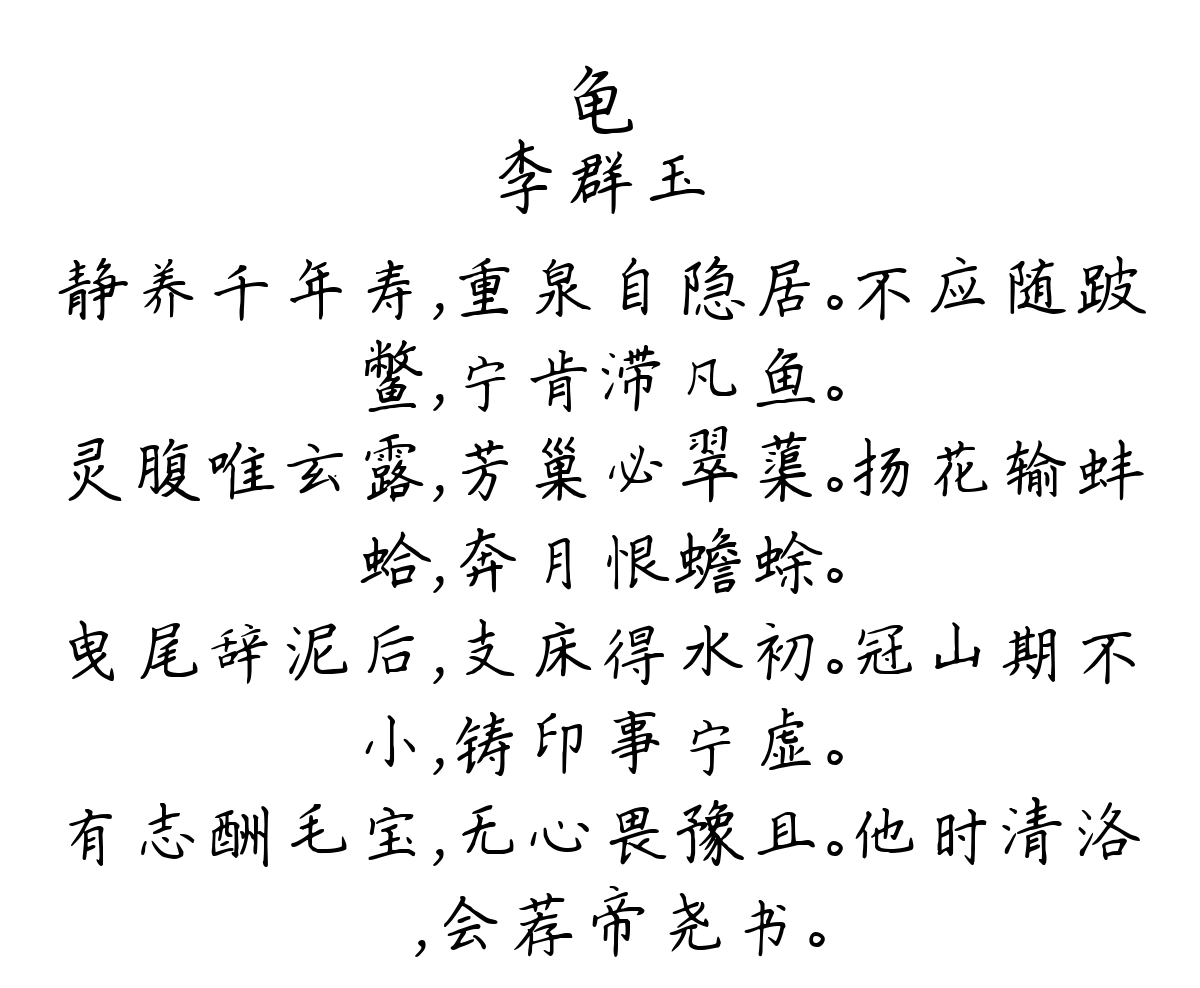 龟
李群玉
静养千年寿,重泉自隐居。不应随跛
鳖,宁肯滞凡鱼。
灵腹唯玄露,芳巢必翠蕖。扬花输蚌
蛤,奔月恨蟾蜍。
曳尾辞泥后,支床得水初。冠山期不
小,铸印事宁虚。
有志酬毛宝,无心畏豫且。他时清洛
,会荐帝尧书。